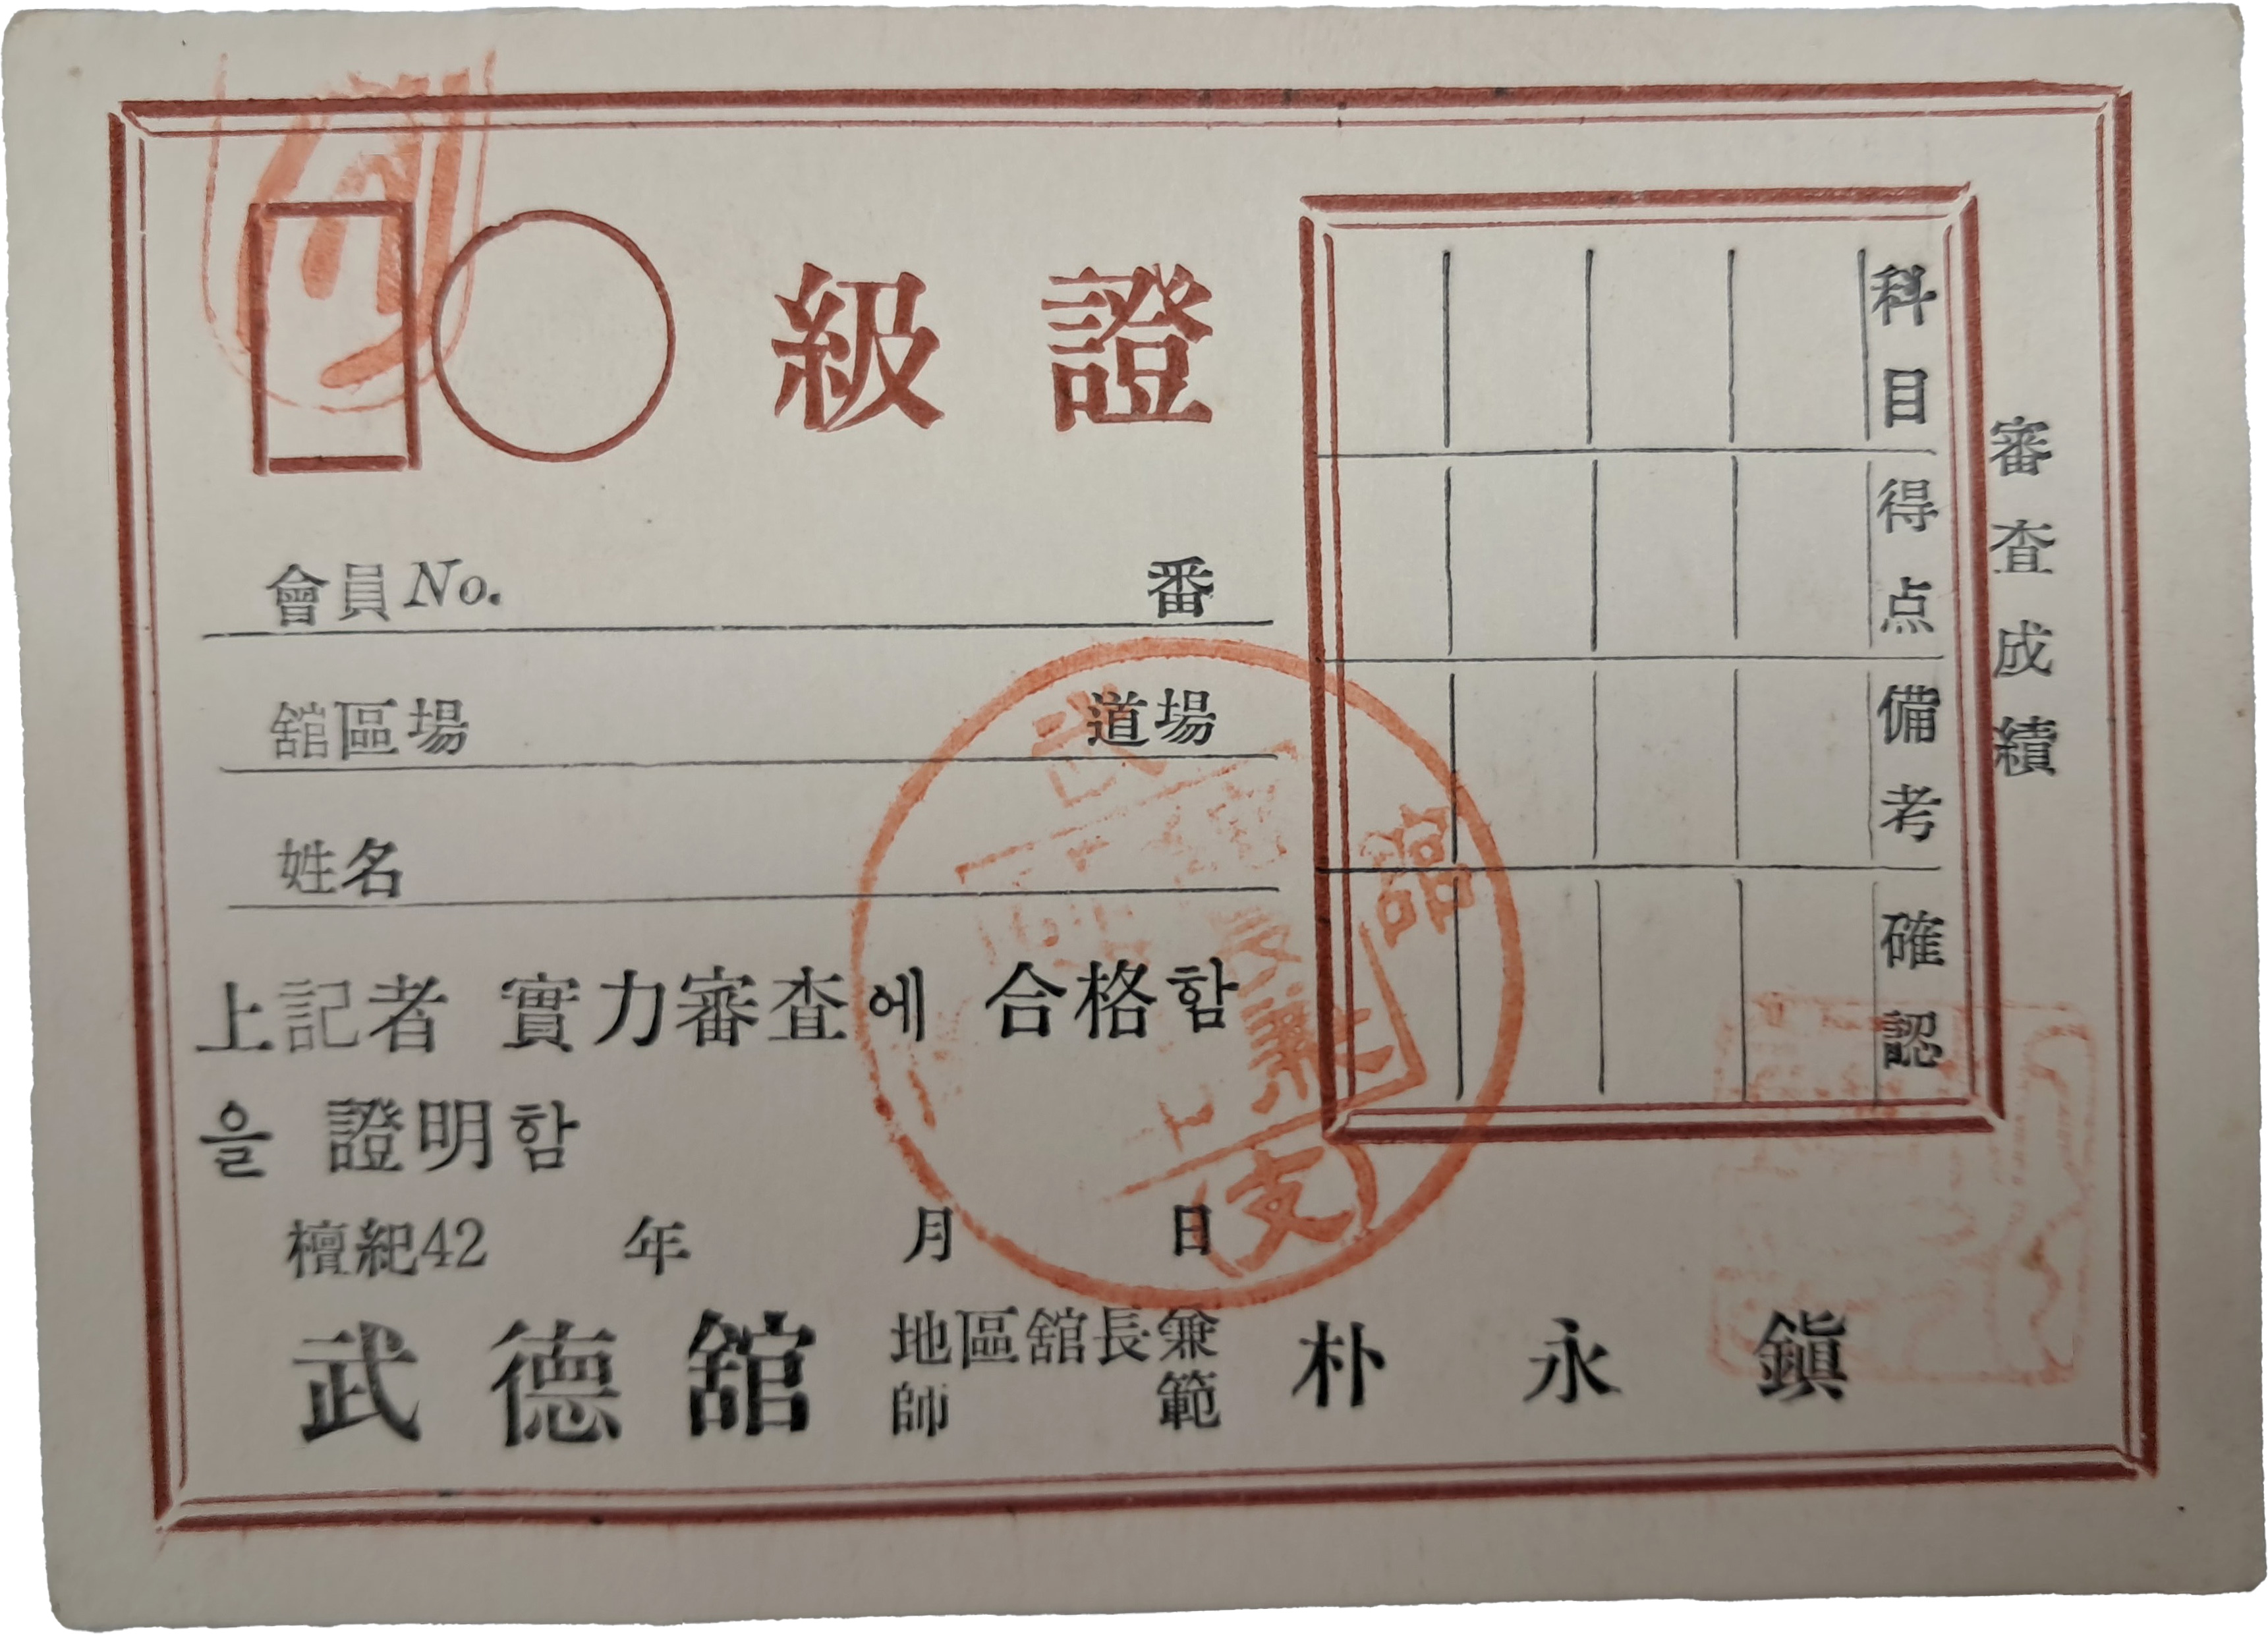 級證
會員No. 番
舘區場 道場
姓名
上記者 實力審査에 合格함
을 證明함
檀紀42 年 月 日
武德舘 地區舘長兼師範 朴永鎭
審査成績
科目
得点
備考
確認
武德舘
支